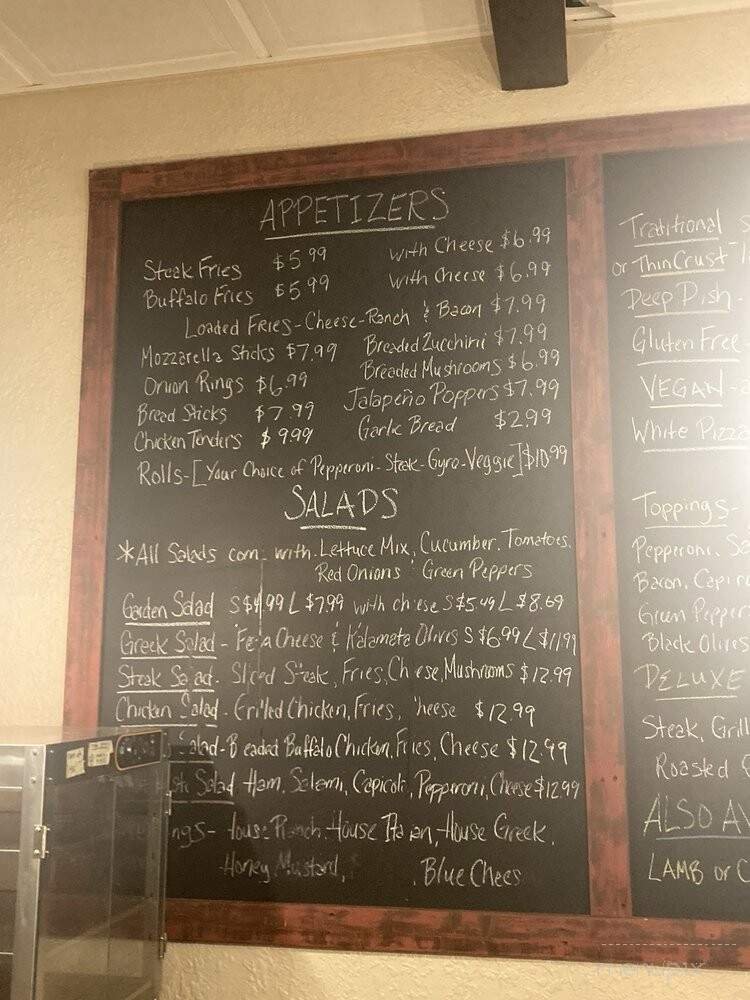 APPETIZERS
Steak Fries $5.99 with Cheese $6.99
Buffalo Fries $5.99 with Cheese $6.99
Loaded Fries-Cheese-Ranch & Bacon $7.99
Mozzarella Sticks $7.99 Breaded Zucchini $7.99
Onion Rings $6.99 Breaded Mushrooms $6.99
Bread Sticks $7.99 Jalapeño Poppers $7.99
Chicken Tenders $9.99 Garlic Bread $2.99
Rolls-[Your Choice of Pepperoni-Steak-Gyro-Veggie] $10.99
SALADS
*All Salads com with Lettuce Mix, Cucumber, Tomatoes,
Red Onions Green Peppers
Garden Salad S $4.99 L $7.99 with cheese S $5.49 L $8.69
Greek Salad - Feta Cheese & Kalamata Olives S $6.99 L $11.99
Steak Salad - Sliced Steak, Fries, Cheese, Mushrooms $12.99
Chicken Salad - Grilled Chicken, Fries, Cheese $12.99
Salad - Breaded Buffalo Chicken, Fries, Cheese $12.99
Salad Ham, Salami, Capicoli, Pepperoni, Cheese $12.99
ngs - House Ranch, House Italian, House Greek,
Honey Mustard, Blue Chees
Traditional
or Thin Crust
Deep Dish -
Gluten Free -
VEGAN -
White Pizza
Toppings -
Pepperoni, Sa
Bacon, Capic
Green Pepper
Black Olives
DELUXE
Steak, Grill
Roasted
ALSO AV
LAMB or C
menupix